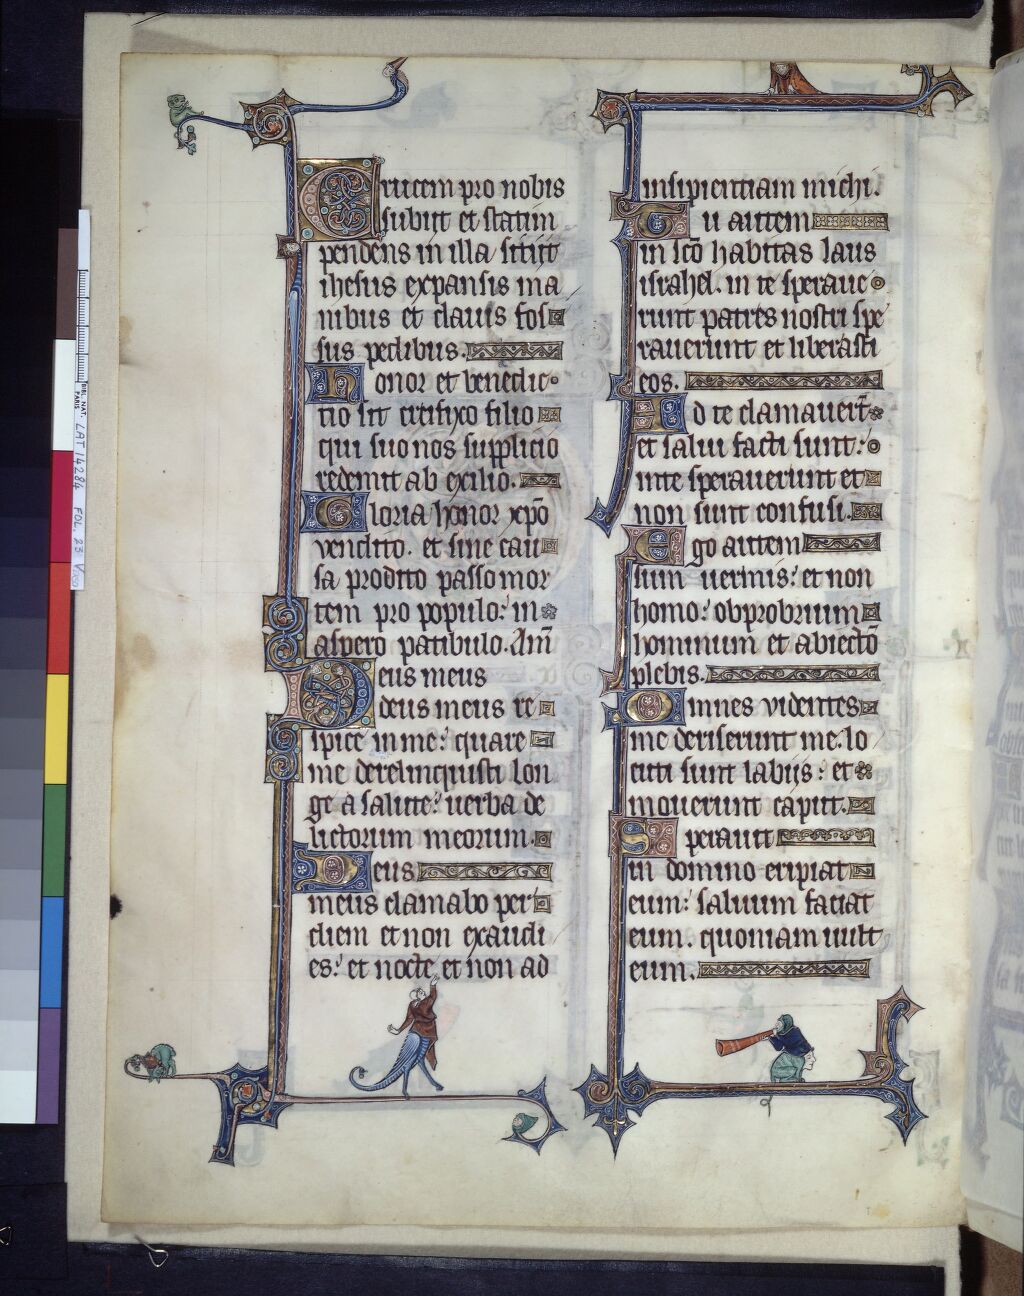 Crucem pro nobis
subiit et statim
pendens in illa sitiit
ihesus expansis ma
nibus et clauis fos
sus pedibus.
Honor et benedic
tio sit crucifixo filio
qui suo nos supplicio
redemit ab exilio.
Gloria honor xp̄o
vendito. et sine cau
sa prodito passo mor
tem pro populo: in
aspero patibulo. Am̄
Deus meus
deus meus re
spice in me: quare
me dereliquisti lon
ge a salute: uerba de
lictorum meorum.
Deus
meus clamabo per
diem et non exaudi
es: et nocte et non ad
insipientiam michi.
Tu autem
in sc̄o habitas laus
israhel. in te speraue
runt patres nostri spe
rauerunt et liberasti
eos.
Ad te clamauer̄t
et salui facti sunt:
in te sperauerunt et
non sunt confusi.
Ego autem
sum uermis: et non
homo: obprobrium
hominum et abiectō
plebis.
Omnes videntes
me deriserunt me: lo
cuti sunt labijs: et
mouerunt caput.
Sperauit
in domino eripiat
eum: saluum faciat
eum. quoniam uult
eum.
BIBL. NAT.
PARIS
LAT 14284 FOL. 23 Vº